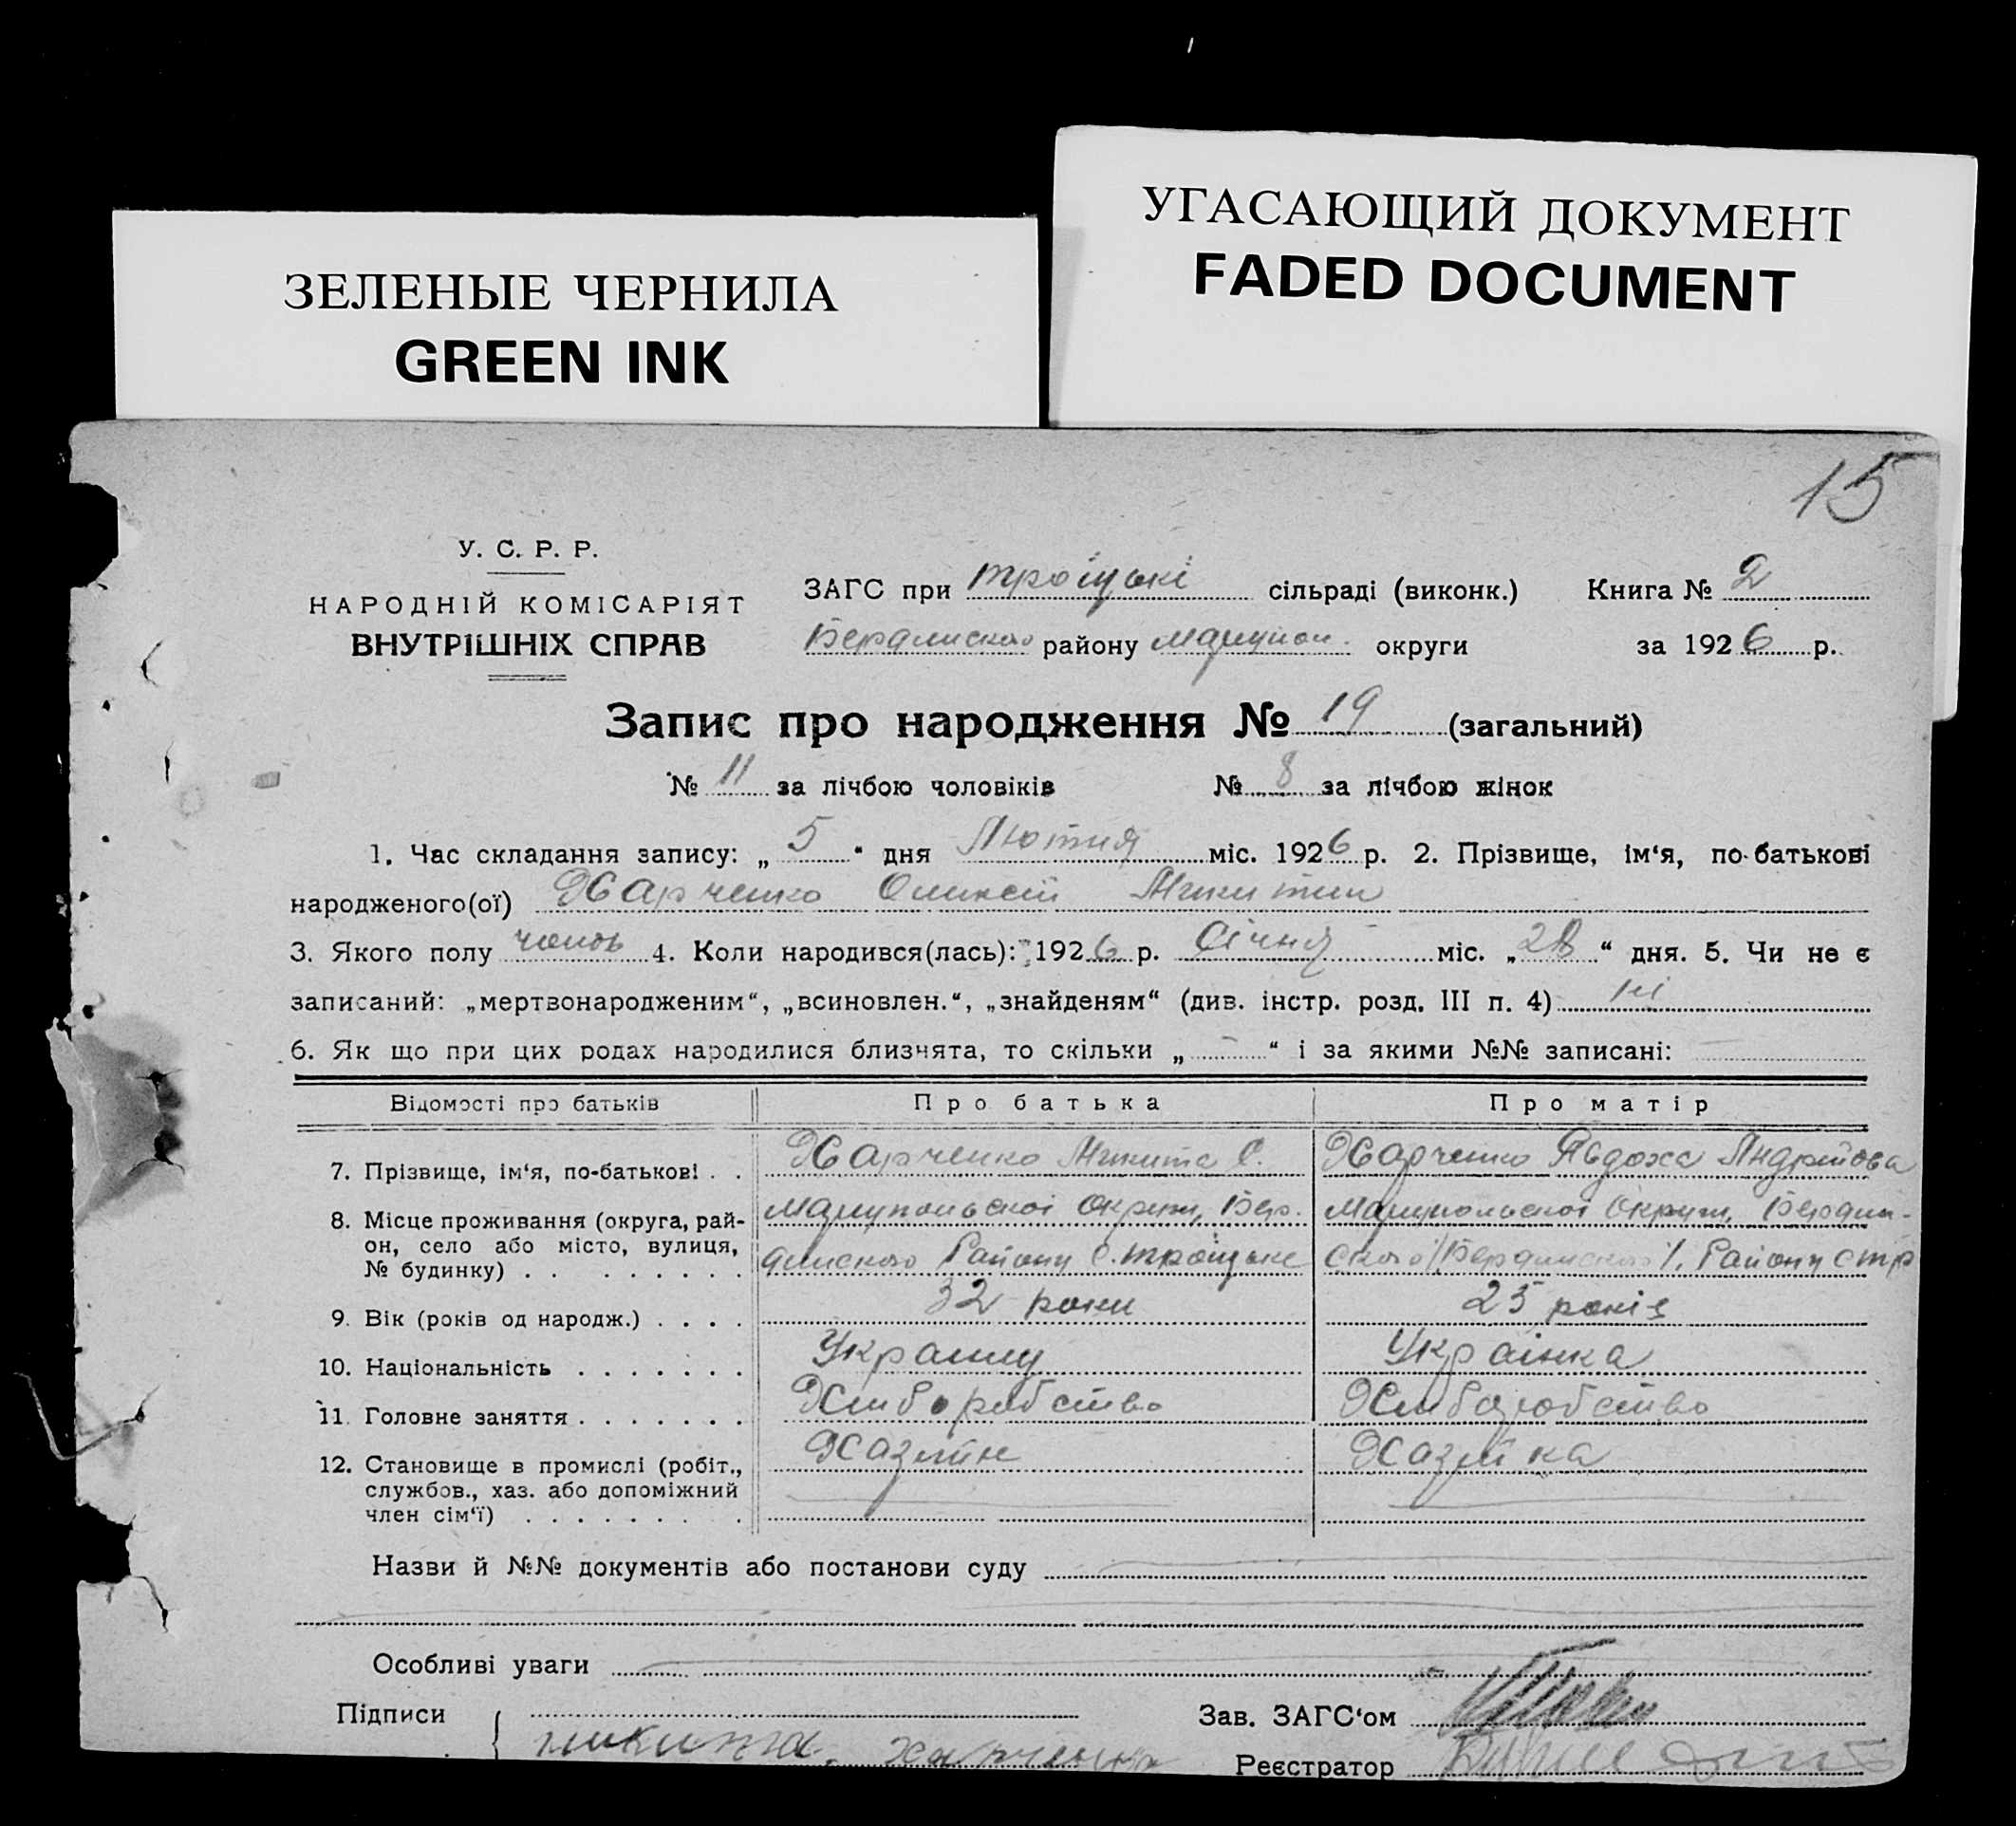 ЗЕЛЕНЫЕ ЧЕРНИЛА
GREEN INK
УГАСАЮЩИЙ ДОКУМЕНТ
FADED DOCUMENT
15
У. С. Р. Р.
НАРОДНІЙ КОМІСАРІЯТ
ВНУТРІШНІХ СПРАВ
ЗАГС при троіцькі сільраді (виконк.) Книга № 2
Бердянского району Маріупол. округи за 1926 р.
Запис про народження № 19 (загальний)
№ 11 за лічбою чоловіків № 8 за лічбою жінок
1. Час складання запису: „5“ дня Лютня міс. 1926 р. 2. Прізвище, ім‘я, по-батькові
народженого(ої) Харченко Олексій Микитин
3. Якого полу чолов 4. Коли народився(лась): 1926 р. Січня міс. „28“ дня. 5. Чи не є
записаний: „мертвонародженим“, „всиновлен.“, „знайденям“ (див. інстр. розд. III п. 4) ні
6. Як що при цих родах народилися близнята, то скільки „ — “ і за якими №№ записані:
Відомості про батьків Про батька Про матір
7. Прізвище, ім‘я, по-батькові . . Харченко Микита С. Харченко Явдоха Андрійова
8. Місце проживання (округа, рай- Маріупольскоі Округи, Бер. Маріупольскоі Округи, Бердян-
он, село або місто, вулиця, дянского Району с. троіцьке ского /Бердянского/. Району с тр
№ будинку) . . . . . . . .
9. Вік (років од народж.) . . . . 32 роки 25 років
10. Національність . . . . . . . Украинц Украінка
11. Головне заняття . . . . . . . Хлиборобство Хлиборобство
12. Становище в промислі (робіт., Хазяїн Хазяйка
службов., хаз. або допоміжний
член сім‘ї) . . . . . . .
Назви й №№ документів або постанови суду
Особливі уваги
Підписи Зав. ЗАГС‘ом
никита. харченко Реєстратор